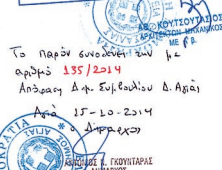 ΑΘ. ΚΟΥΤΣΟΥΤΑΣΙΟΣ
ΑΡΧΙΤΕΚΤΩΝ ΜΗΧΑΝΙΚΟΣ
ΜΕ β.
Το παρόν συνοδεύει την με
αριθμό 135/2014
Απόφαση Δημ. Συμβουλίου Δ. Αγιάς
Αγιά 15-10-2014
ο Δήμαρχος
ΑΝΤΩΝΙΟΣ Ν. ΓΚΟΥΝΤΑΡΑΣ
ΔΗΜΑΡΧΟΣ